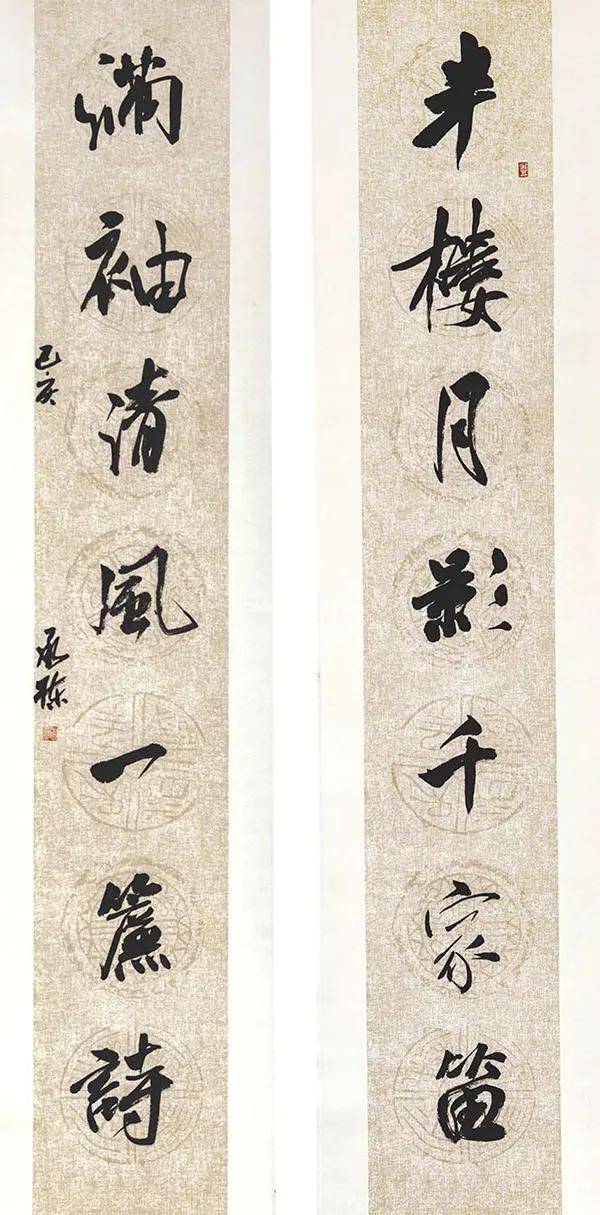 半樓月影千家笛
滿袖清風一簾詩
己亥
承棟